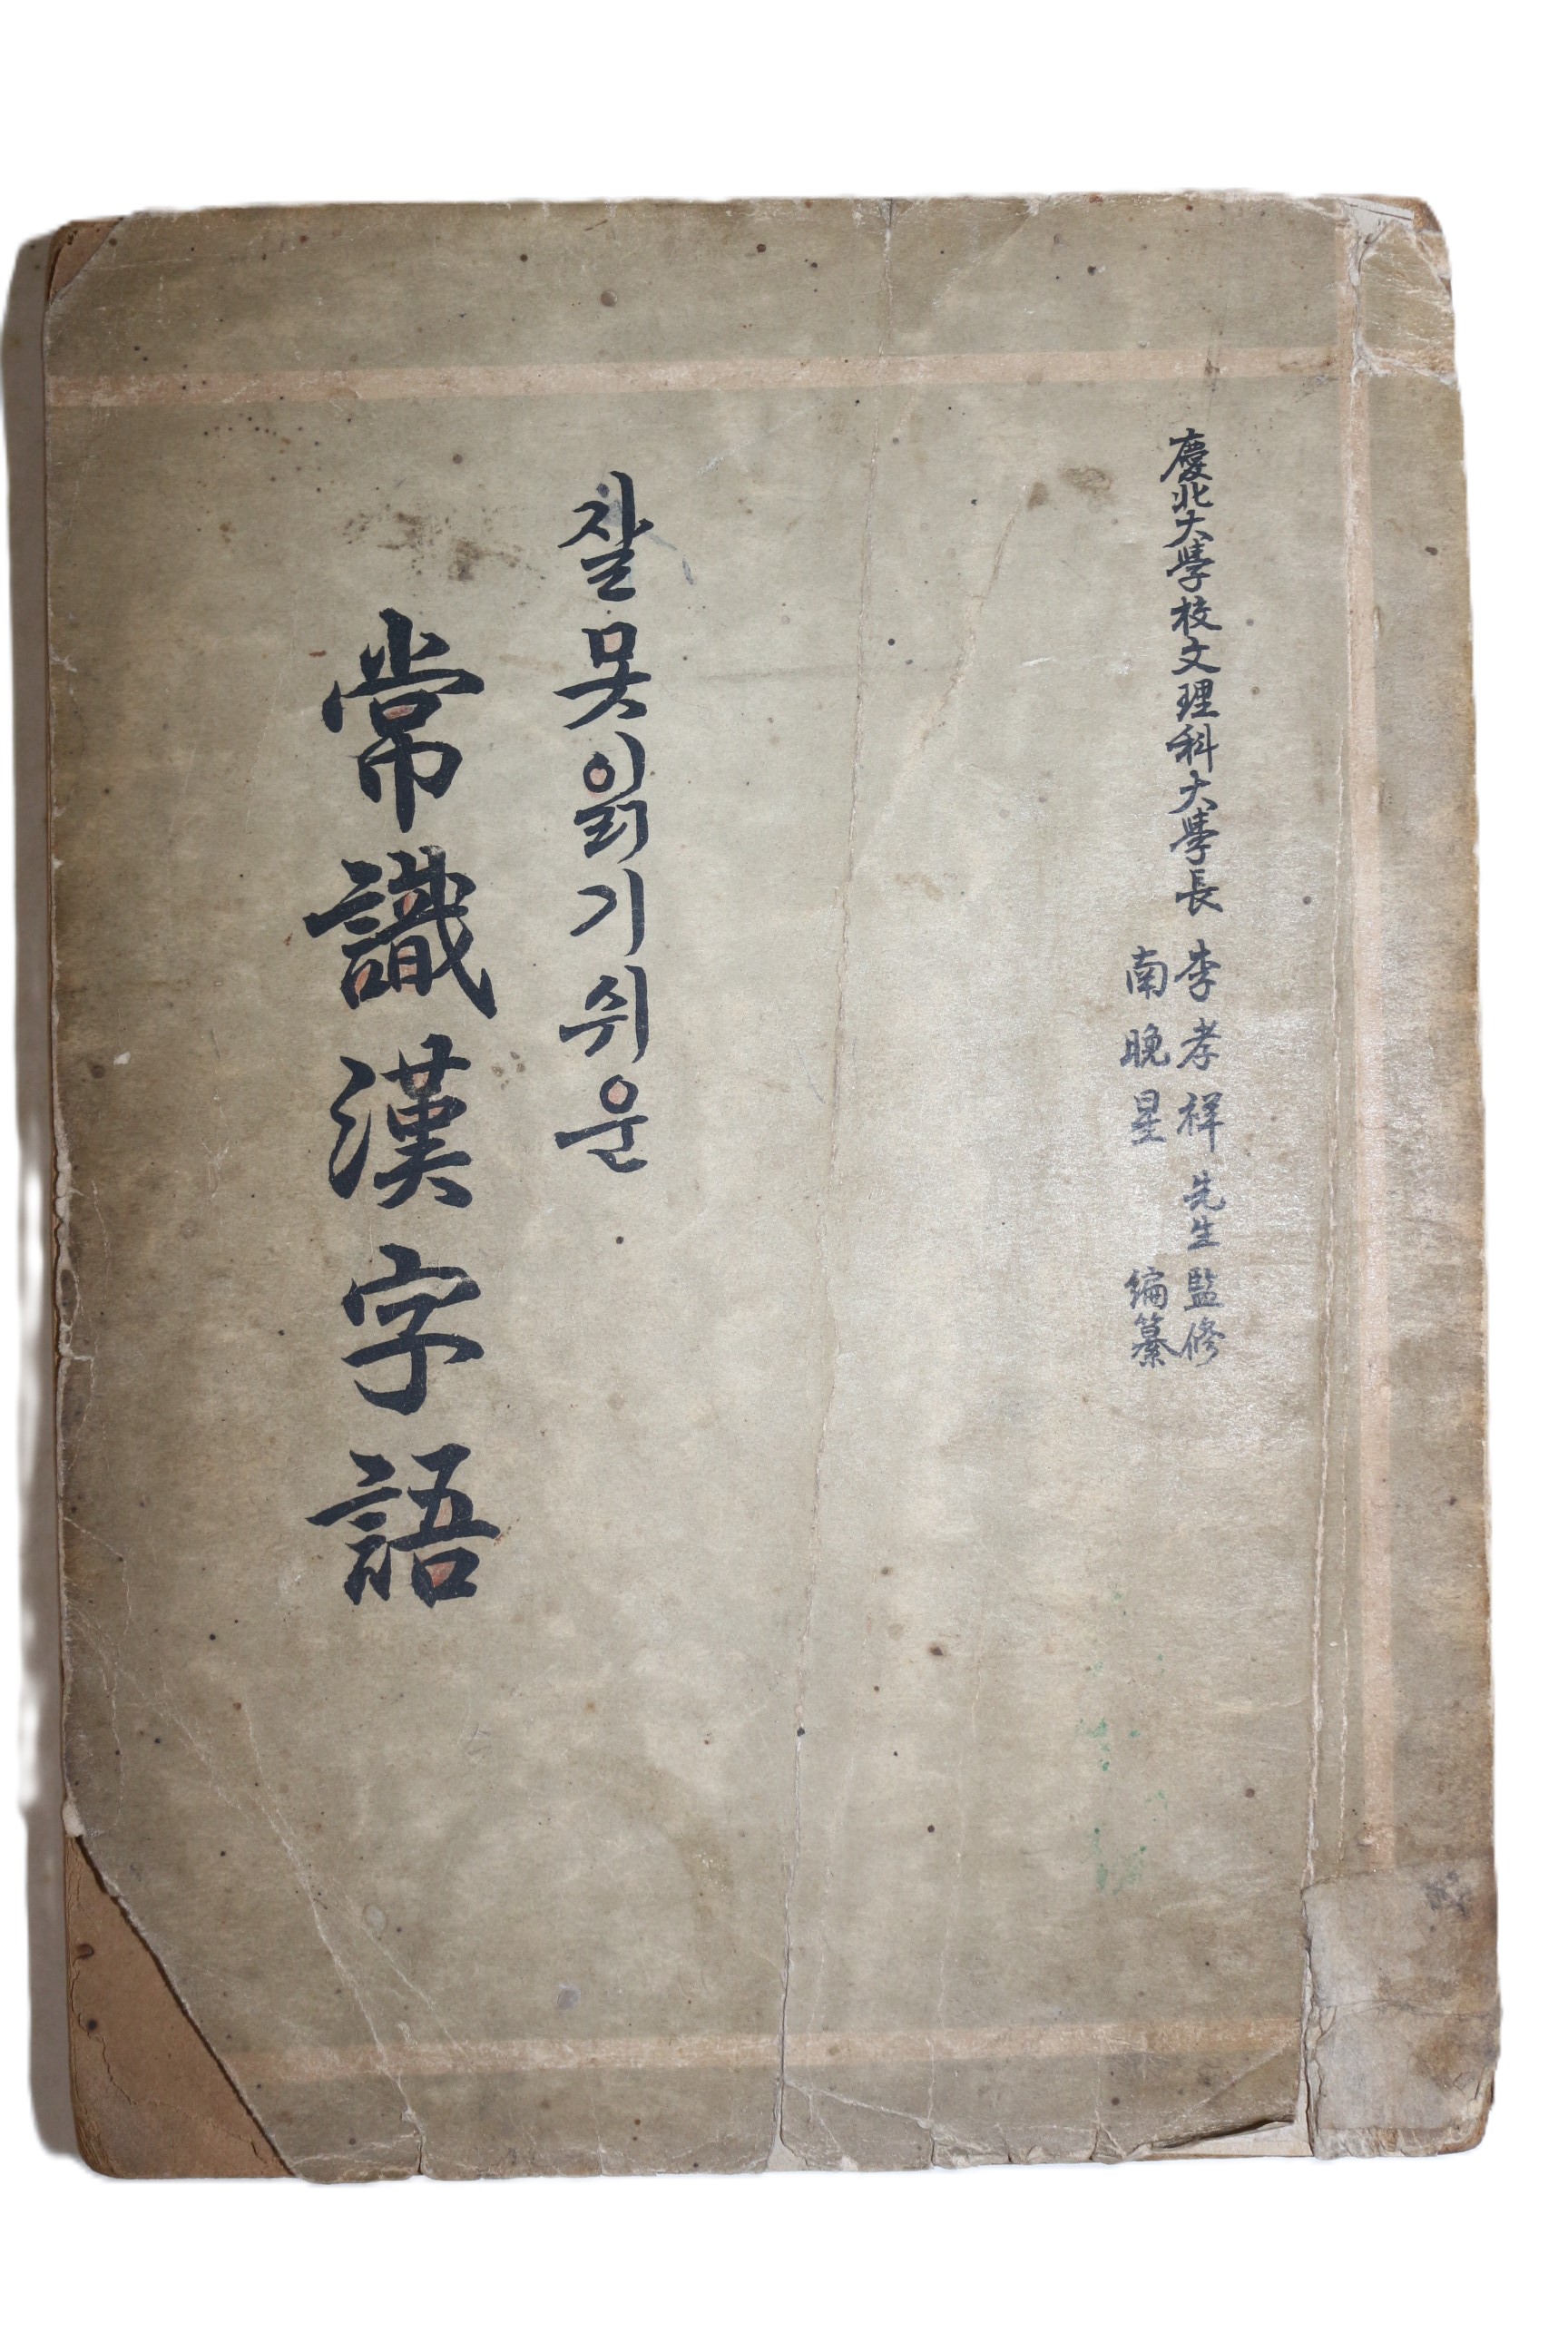 慶北大學校文理科大學長 李孝祥 先生 監修
南晩星 編纂
찰못읽기쉬운
常識漢字語